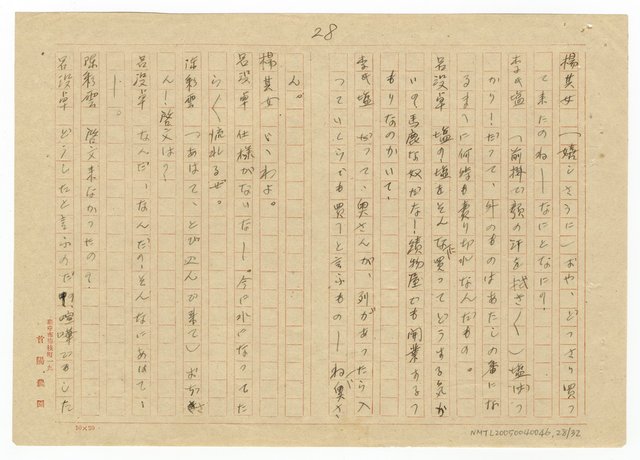 28
楊其女　（嬉しさうに）おや、どつさり買つ
て来たのねーなにとなにり、
李氏塩　（前掛で額の汗を拭き〱）塩ばつ
かり！だつて、外のものはあたしの番にな
るまへに何時も賣り切れなんだもの。
呂没卓　塩の塩をそんなに買つてどうする気か
いの馬鹿な奴だな！漬物屋でも開業するつ
もりなのかいて、
李氏塩　だつて、奥さんが、列があつたら入
つていくらでも買へと言ふものーね奥さ
ん。
楊其女　いゝわよ。
呂没卓　仕様がないなー。今に水になつてた
ら〱流れるぜ。
陳彩雲　（あはてゝ、とび込んで来て）お父さ
ん！啓文は？
呂没卓　なんだ、なんだの、そんなにあはてゝ
ー。
陳彩雲　啓文来なかつたの？
呂没卓　どうしたと言ふのだ、喧嘩でもした
首陽農園
10×20
NMTL20050040046_28/32